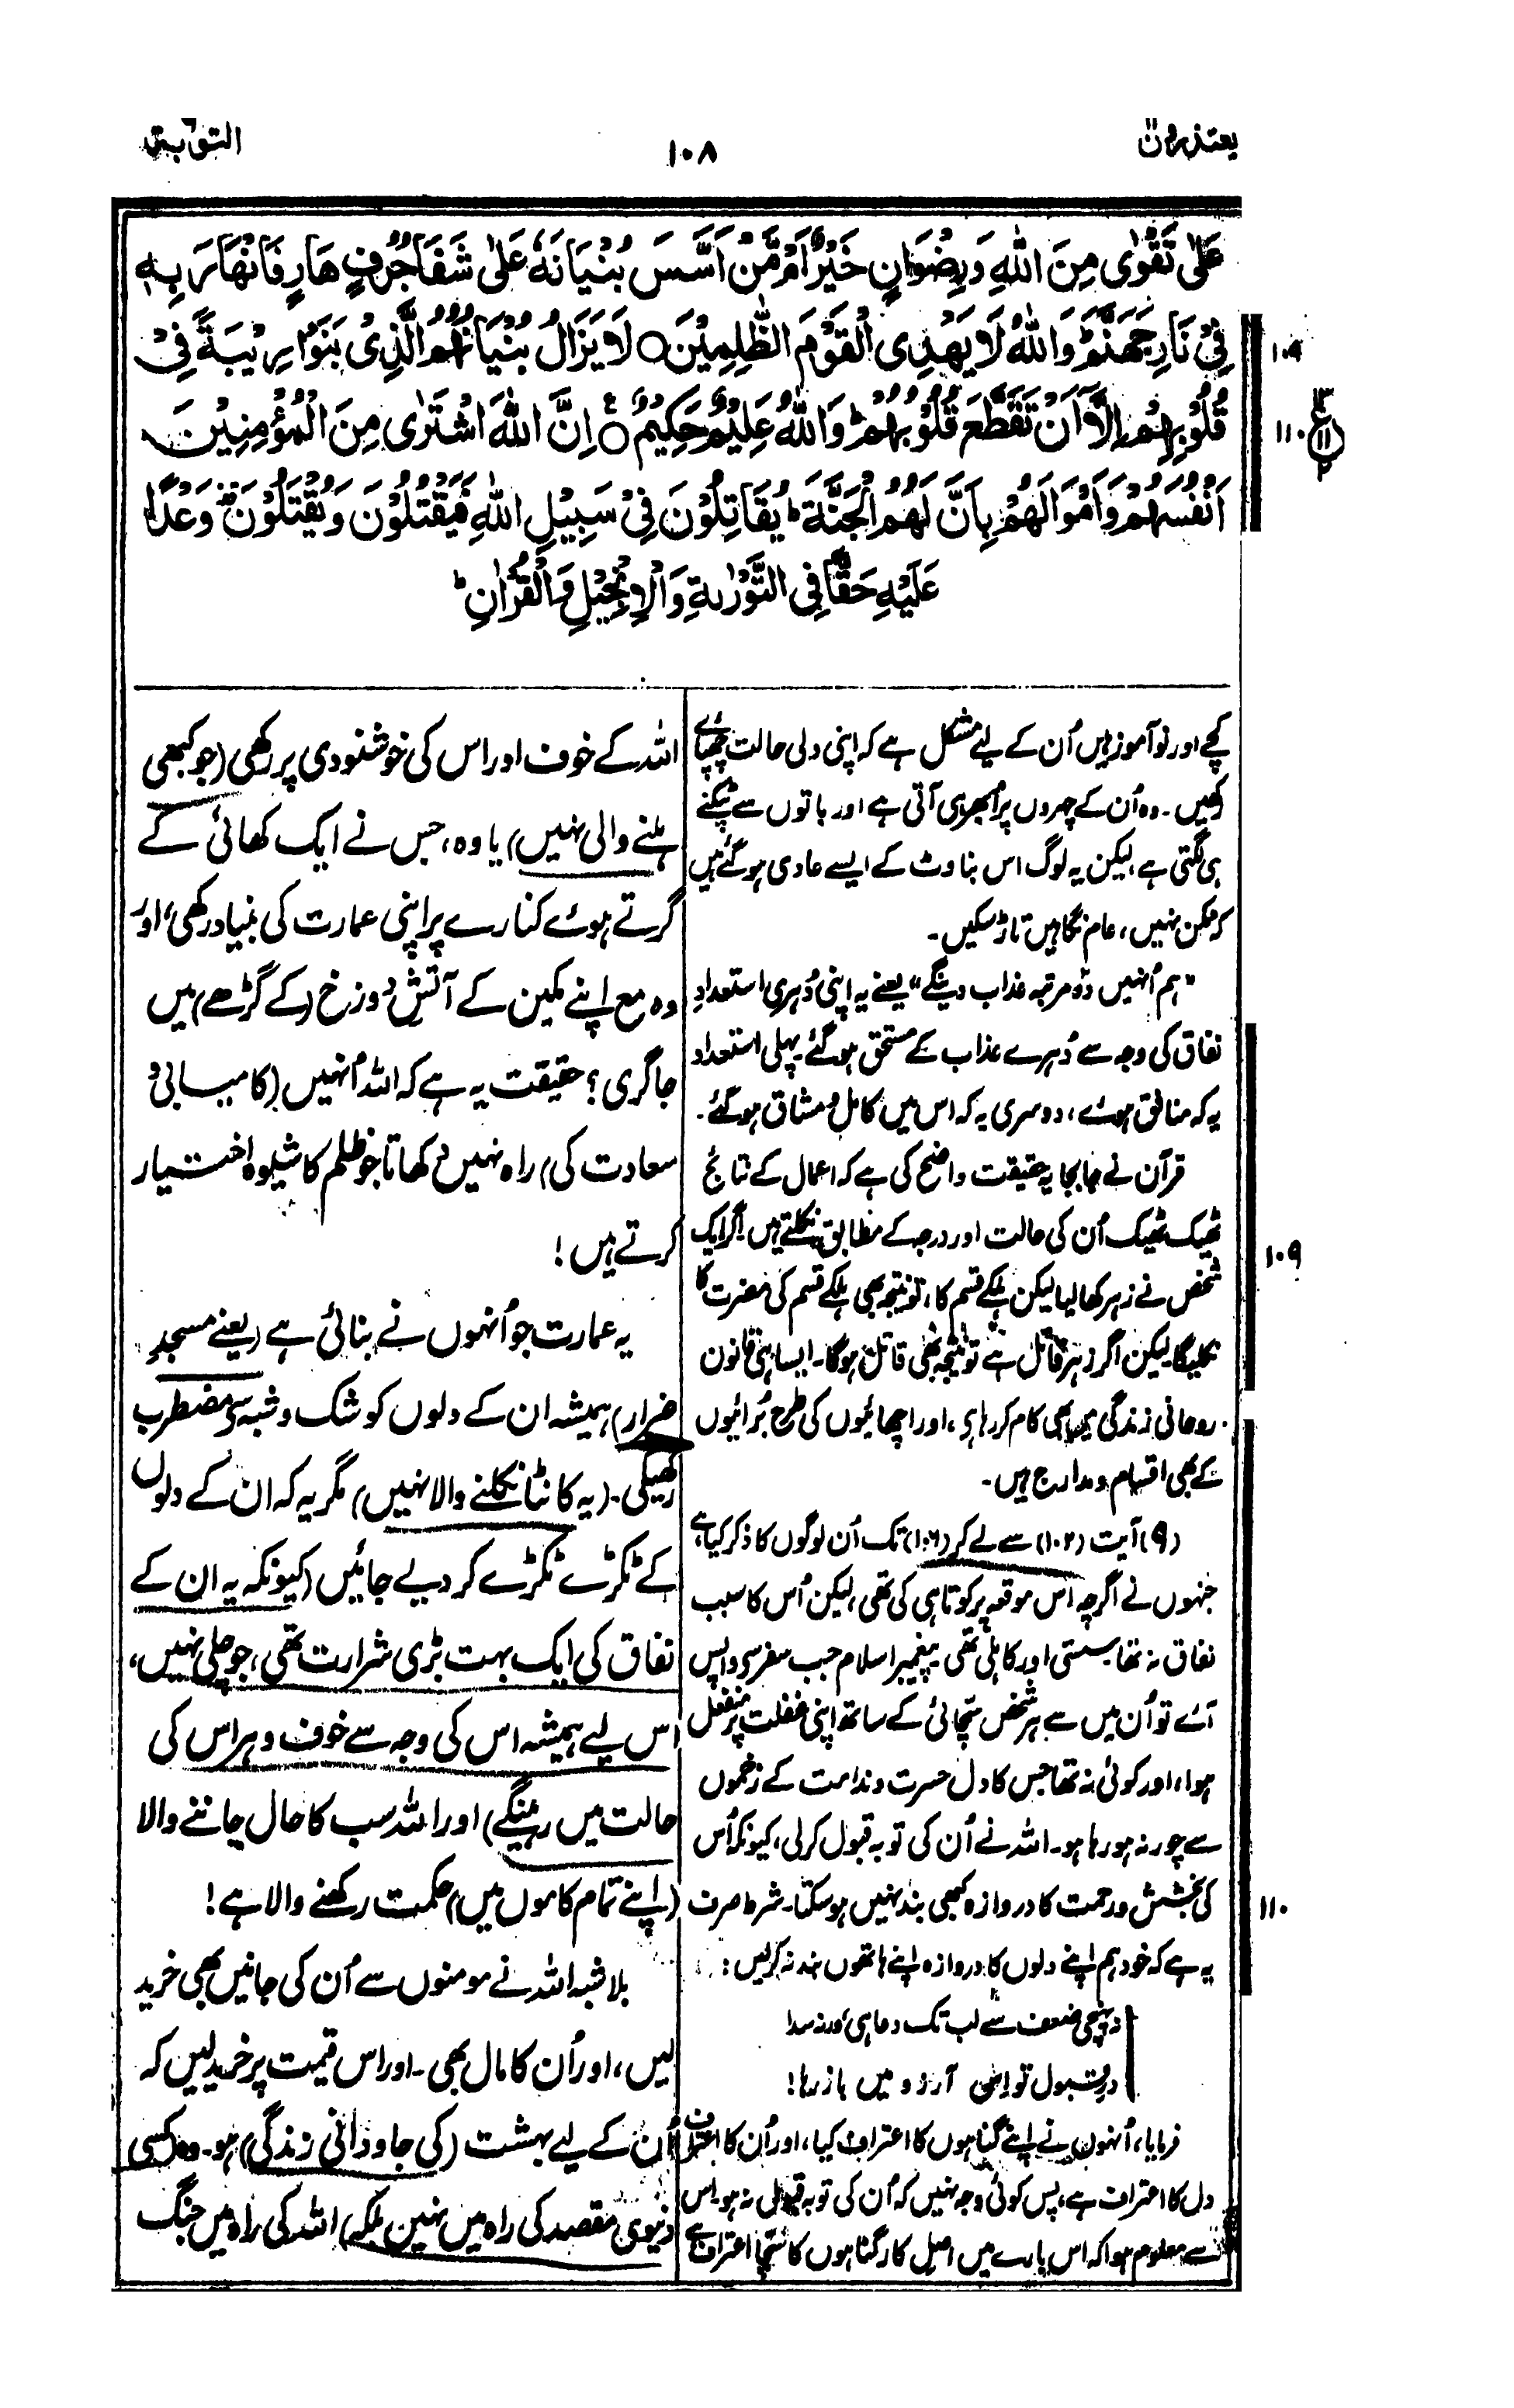 یعتذرون
۱۰۸
التوبة
عَلٰی تَقْوٰی مِنَ اللّٰهِ وَرِضْوَانٍ خَیْرٌ اَمْ مَّنْ اَسَّسَ بُنْیَانَهٗ عَلٰی شَفَا جُرُفٍ هَارٍ فَانْهَارَ بِهٖ
فِیْ نَارِ جَهَنَّمَ ؕ وَاللّٰهُ لَا یَهْدِی الْقَوْمَ الظّٰلِمِیْنَ ○ لَا یَزَالُ بُنْیَانُهُمُ الَّذِیْ بَنَوْا رِیْبَةً فِیْ
۱۰۹
قُلُوْبِهِمْ اِلَّاۤ اَنْ تَقَطَّعَ قُلُوْبُهُمْ ؕ وَاللّٰهُ عَلِیْمٌ حَکِیْمٌ ○ اِنَّ اللّٰهَ اشْتَرٰی مِنَ الْمُؤْمِنِیْنَ
۱۱۰
اَنْفُسَهُمْ وَاَمْوَالَهُمْ بِاَنَّ لَهُمُ الْجَنَّةَ ؕ یُقَاتِلُوْنَ فِیْ سَبِیْلِ اللّٰهِ فَیَقْتُلُوْنَ وَیُقْتَلُوْنَ وَعْدًا
عَلَیْهِ حَقًّا فِی التَّوْرٰىةِ وَالْاِنْجِیْلِ وَالْقُرْاٰنِ ؕ
کچے اور نوآموز ہیں اُن کے لیے مشکل ہے کہ اپنی دلی حالت چھپائے
رکھیں۔ وہ اُن کے چہروں پر اُبھر ہی آتی ہے اور باتوں سے ٹپکنے
ہی لگتی ہے، لیکن یہ لوگ اس بناوٹ کے ایسے عادی ہو گئے ہیں
کہ ممکن نہیں، عام نگاہیں تاڑ سکیں۔
"ہم اُنہیں دو مرتبہ عذاب دینگے" یعنے یہ اپنی دُہری استعدادِ
نفاق کی وجہ سے دُہرے عذاب کے مستحق ہو گئے۔ پہلی استعداد
یہ کہ منافق ہوئے، دوسری یہ کہ اس میں کامل و مشاق ہو گئے۔
قرآن نے جابجا یہ حقیقت واضح کی ہے کہ اعمال کے نتائج
ٹھیک ٹھیک اُن کی حالت اور درجہ کے مطابق نکلتے ہیں۔ اگر ایک
شخص نے زہر کھا لیا لیکن ہلکے قسم کا، تو نتیجہ بھی ہلکے قسم کی مضرت کا
نکلیگا لیکن اگر زہر قاتل ہے تو نتیجہ بھی قاتل ہوگا۔ ایسا ہی قانون
روحانی زندگی میں بھی کام کر رہا ہے، اور اچھائیوں کی طرح بُرائیوں
کے بھی اقسام و مدارج ہیں۔
(۹) آیت (۱۰۲) سے لے کر (۱۰۶) تک اُن لوگوں کا ذکر کیا ہے
جنہوں نے اگرچہ اس موقعہ پر کوتاہی کی تھی، لیکن اُس کا سبب
نفاق نہ تھا سستی اور کاہلی تھی۔ پیغمبر اسلام جب سفر سے واپس
آئے تو اُن میں سے ہر شخص سچائی کے ساتھ اپنی غفلت پر منفعل
ہوا، اور کوئی نہ تھا جس کا دل حسرت و ندامت کے زخموں
سے چور نہ ہو رہا ہو۔ اللہ نے اُن کی توبہ قبول کرلی، کیونکہ اُس
کی بخشش و رحمت کا دروازہ کبھی بند نہیں ہو سکتا۔ شرط صرف
یہ ہے کہ خود ہم اپنے دلوں کا دروازہ اپنے ہاتھوں بند نہ کرلیں:
نہ پہنچی ضعف سے لب تک دعا ہی ورنہ سدا
درِ قبول تو اِسی آرزو میں باز رہا!
فرمایا، اُنہوں نے اپنے گناہوں کا اعتراف کیا، اور اُن کا اعتراف
دل کا اعتراف ہے، پس کوئی وجہ نہیں کہ اُن کی توبہ قبول نہ ہو۔ اس
سے معلوم ہوا کہ اس بارے میں اصل کار گناہوں کا سچا اعتراف ہے
اللہ کے خوف اور اس کی خوشنودی پر رکھی (جو کبھی
ہلنے والی نہیں) یا وہ، جس نے ایک کھائی کے
گرتے ہوئے کنارے پر اپنی عمارت کی بنیاد رکھی، اور
وہ مع اپنے مکین کے آتشِ دوزخ (کے گڑھے) میں
جا گری؟ حقیقت یہ ہے کہ اللہ اُنہیں (کامیابی و
سعادت کی) راہ نہیں دکھاتا جو ظلم کا شیوہ اختیار
کرتے ہیں!
۱۰۹
یہ عمارت جو اُنہوں نے بنائی ہے (یعنے مسجدِ
ضرار) ہمیشہ ان کے دلوں کو شک و شبہ سے مضطرب
رکھیگی۔ (یہ کانٹا نکلنے والا نہیں) مگر یہ کہ ان کے دلوں
کے ٹکڑے ٹکڑے کر دیے جائیں (کیونکہ یہ ان کے
نفاق کی ایک بہت بڑی شرارت تھی، جو چلی نہیں،
اس لیے ہمیشہ اس کی وجہ سے خوف و ہراس کی
حالت میں رہینگے) اور اللہ سب کا حال جاننے والا
(اپنے تمام کاموں میں) حکمت رکھنے والا ہے!
۱۱۰
بلا شبہ اللہ نے مومنوں سے اُن کی جانیں بھی خرید
لیں، اور اُن کا مال بھی۔ اور اس قیمت پر خرید لیں کہ
اُن کے لیے بہشت (کی جاودانی زندگی) ہو۔ وہ (کسی
دنیوی مقصد کی راہ میں نہیں بلکہ) اللہ کی راہ میں جنگ